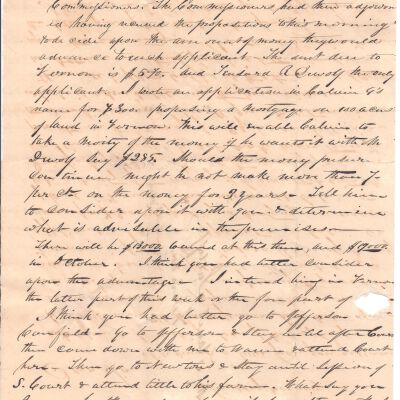 Commissioners. The Commissioners, and then adjourn
ed having received the propositions to this morning
to decide upon the amount of money they would
advance to each applicant. The amt due to
Vernon is $570. and Tensard A Dewolf the only
applicant. I wrote an application in Calvin G's
name for $300 proposing a mortgage on 100 acres
of land in Vernon. This will enable Calvin to
take a moity of the money if he wants it with Mr
Dwolf say $285. Should the money pressure
continue might he not make more than 7
per ct. on the money for 3 years. Tell him
to consider upon it with you & determine
what is adviseable in the premises.
There will be $13000 loaned at this time, and $19000
in October. I think you had better consider
upon the advantage. I intend being in Vernon
the latter part of this week or the fore part of
I think you had better go to Jefferson
Canfield. Go to Jefferson & stay until after Court
then come down with me to Warren & attend Court
here. Then go to Newton & stay until session of
S. Court & attend little to his farm. What say you